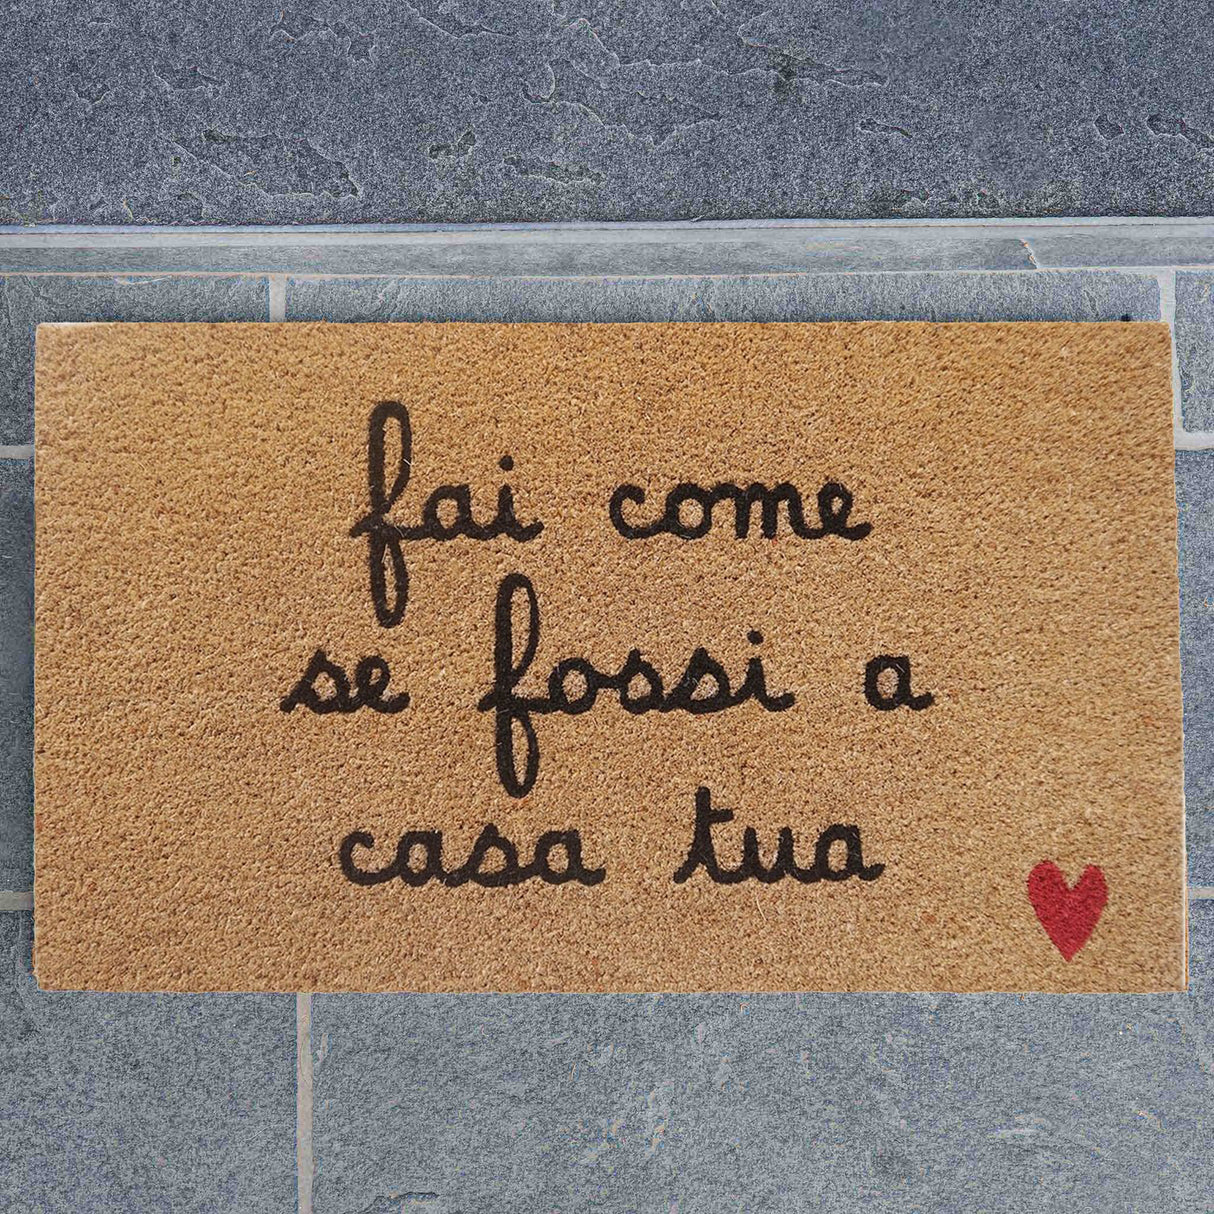 fai come
se fossi a
casa tua